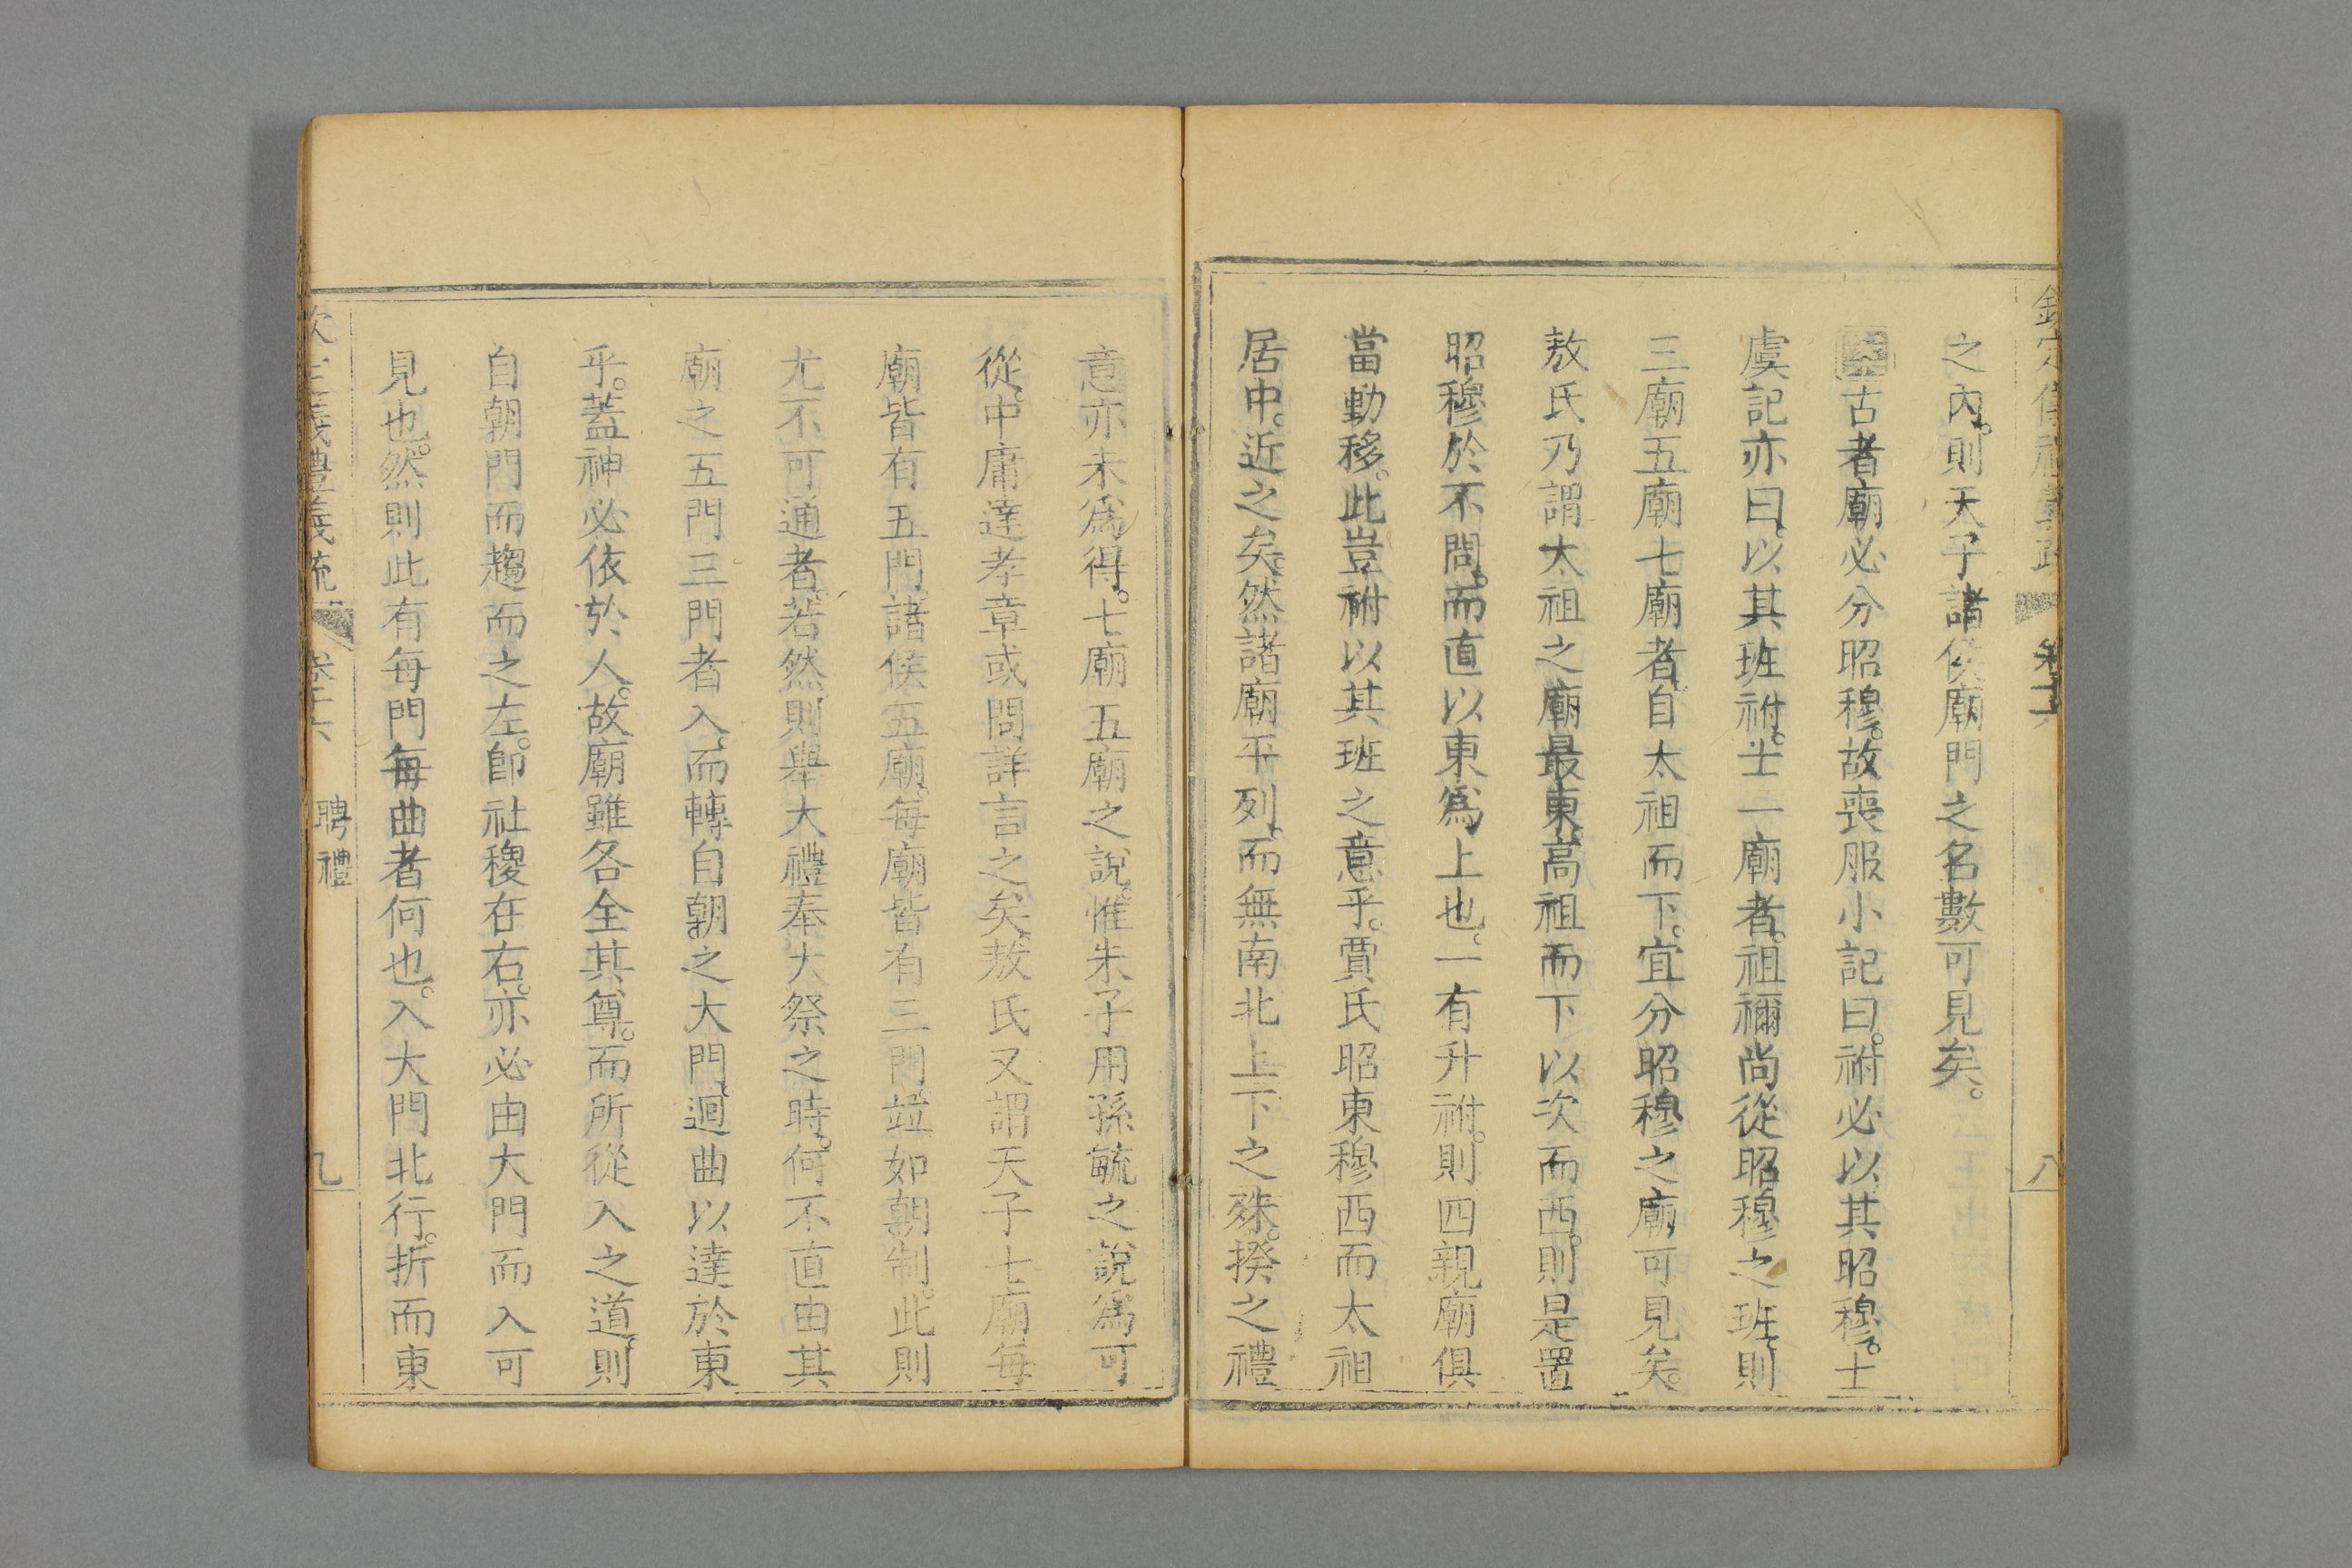 之內。則天子諸侯廟門之名數可見矣。
古者廟必分昭穆。故喪服小記曰。祔必以其昭穆。士
虞記亦曰。以其班祔。士一廟者。祖禰尚從昭穆之班。則
三廟五廟七廟者。自太祖而下。宜分昭穆之廟可見矣。
敖氏乃謂太祖之廟最東。高祖而下以次而西。則是置
昭穆於不問。而直以東爲上也。一有升祔。則四親廟俱
當動移。此豈祔以其班之意乎。賈氏昭東穆西而太祖
居中。近之矣。然諸廟平列。而無南北上下之殊。揆之禮
意亦未爲得。七廟五廟之說。惟朱子用孫毓之說爲可
從。中庸達孝章或問詳言之矣。敖氏又謂天子七廟每
廟皆有五門。諸侯五廟。每廟皆有三門。並如朝制。此則
尤不可通者。若然。則舉大禮奉大祭之時。何不直由其
廟之五門三門者入。而轉自朝之大門。迴曲以達於東
乎。蓋神必依於人。故廟雖各全其尊。而所從入之道。則
自朝門而趨而之左。卽社稷在右。亦必由大門而入可
見也。然則此有每門每曲者何也。入大門北行。折而東
聘禮